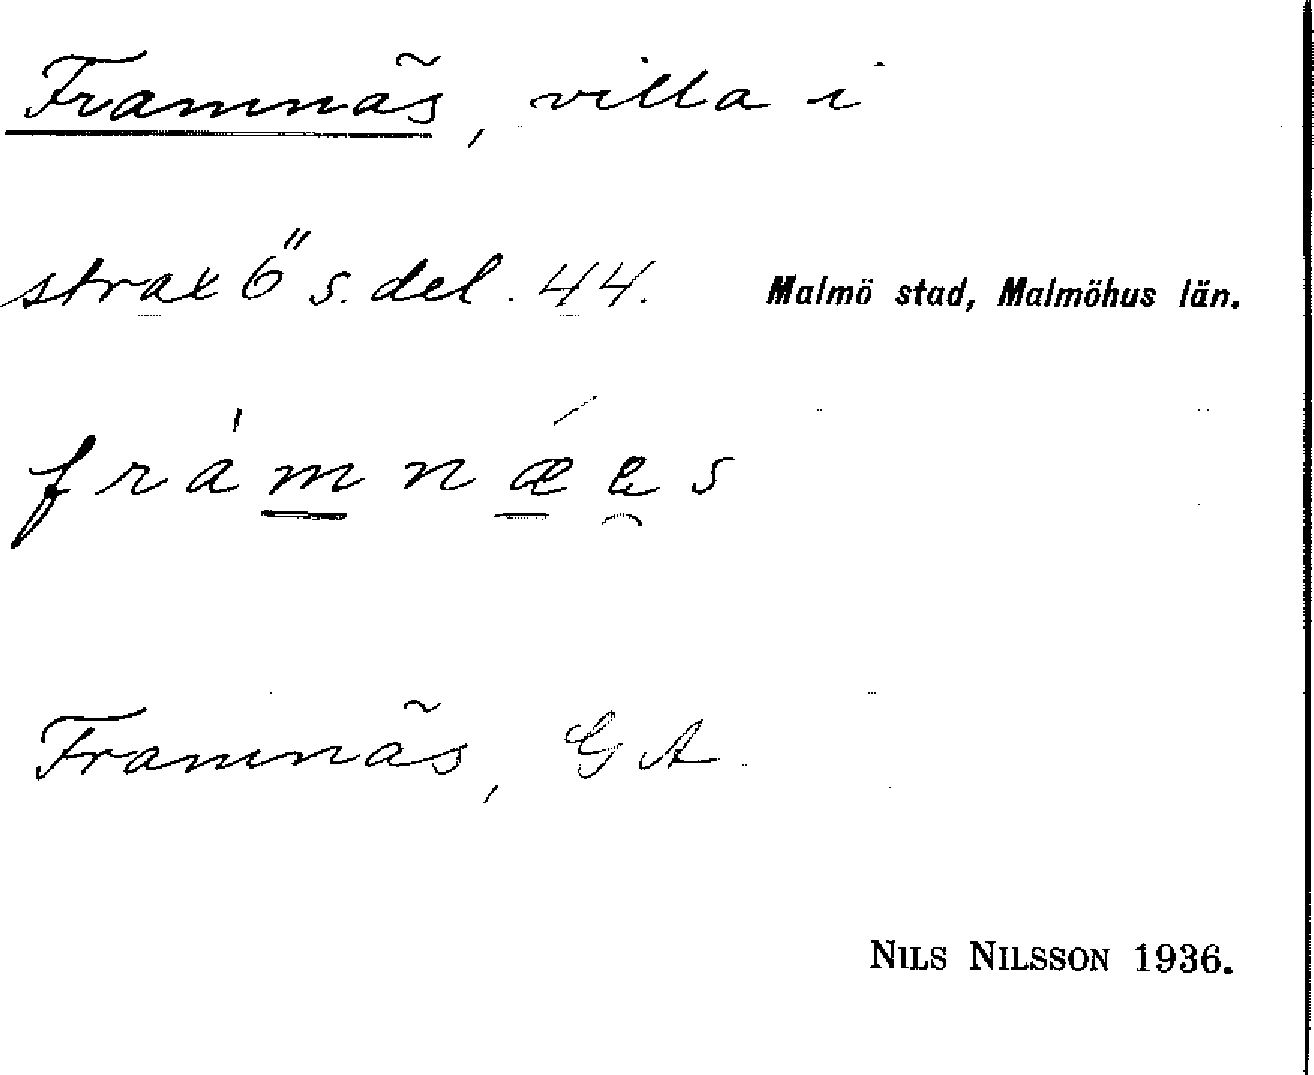 Framnäs, villa i
strax ö s. del. 44. Malmö stad, Malmöhus län.
framnæes
Framnäs, GA.
NILS NILSSON 1936.